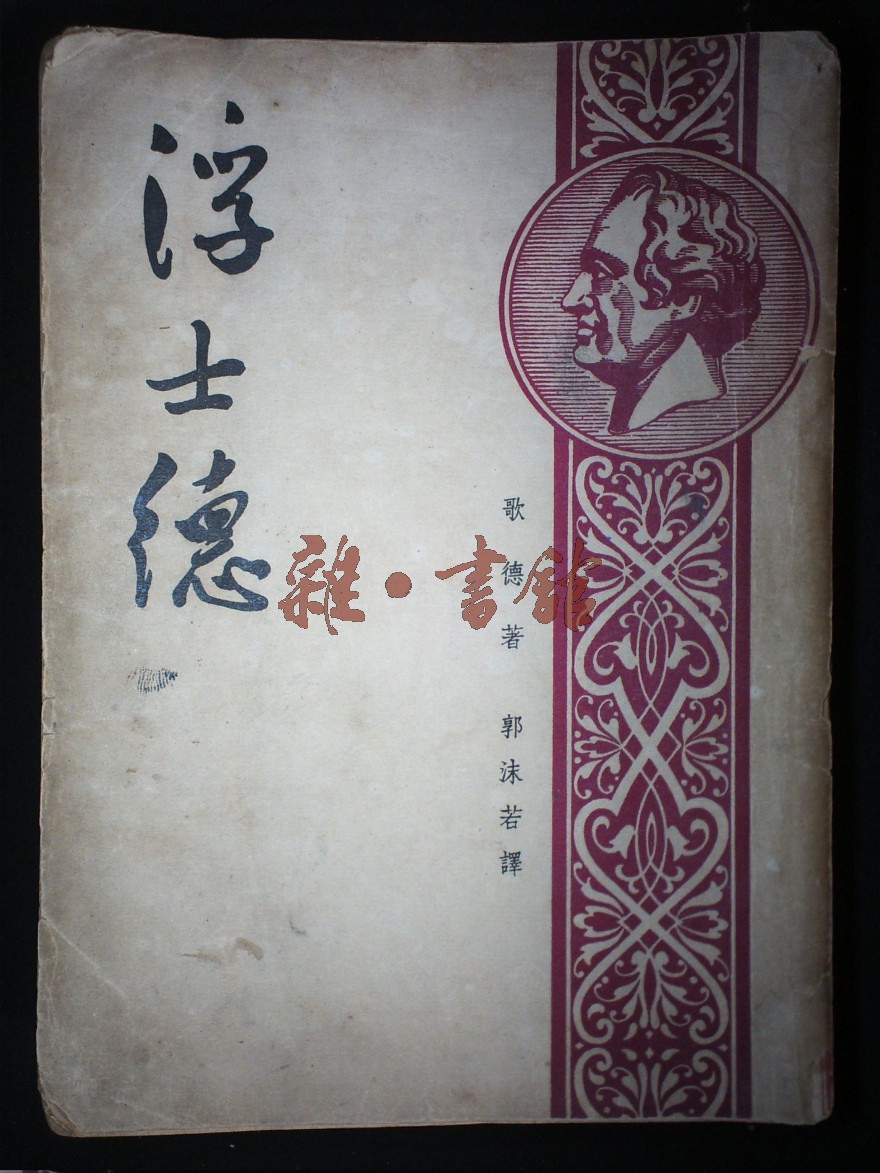 浮士德
歌德著 郭沫若譯
雜·書館